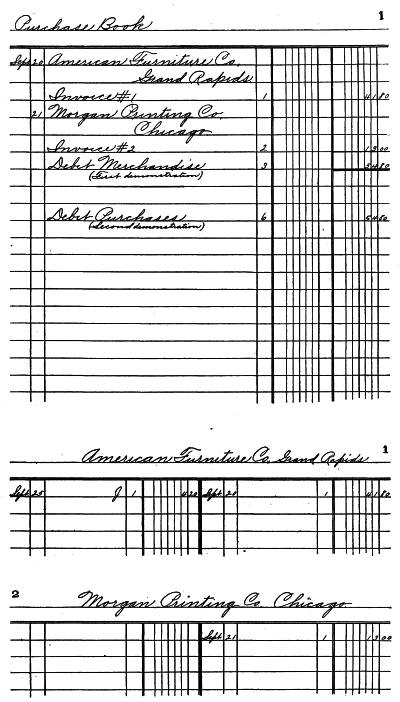 Purchase Book 1
Sept 20 American Furniture Co.
Grand Rapids
Invoice #1 1 41 80
21 Morgan Printing Co.
Chicago
Invoice #2 2 13 00
Debit Merchandise 3 54 80
(First demonstration)
Debit Purchases 6 54 80
(Second demonstration)
American Furniture Co. Grand Rapids 1
Sept 25 J 1 4 20 Sept 20 1 41 80
2 Morgan Printing Co. Chicago
Sept 21 1 13 00